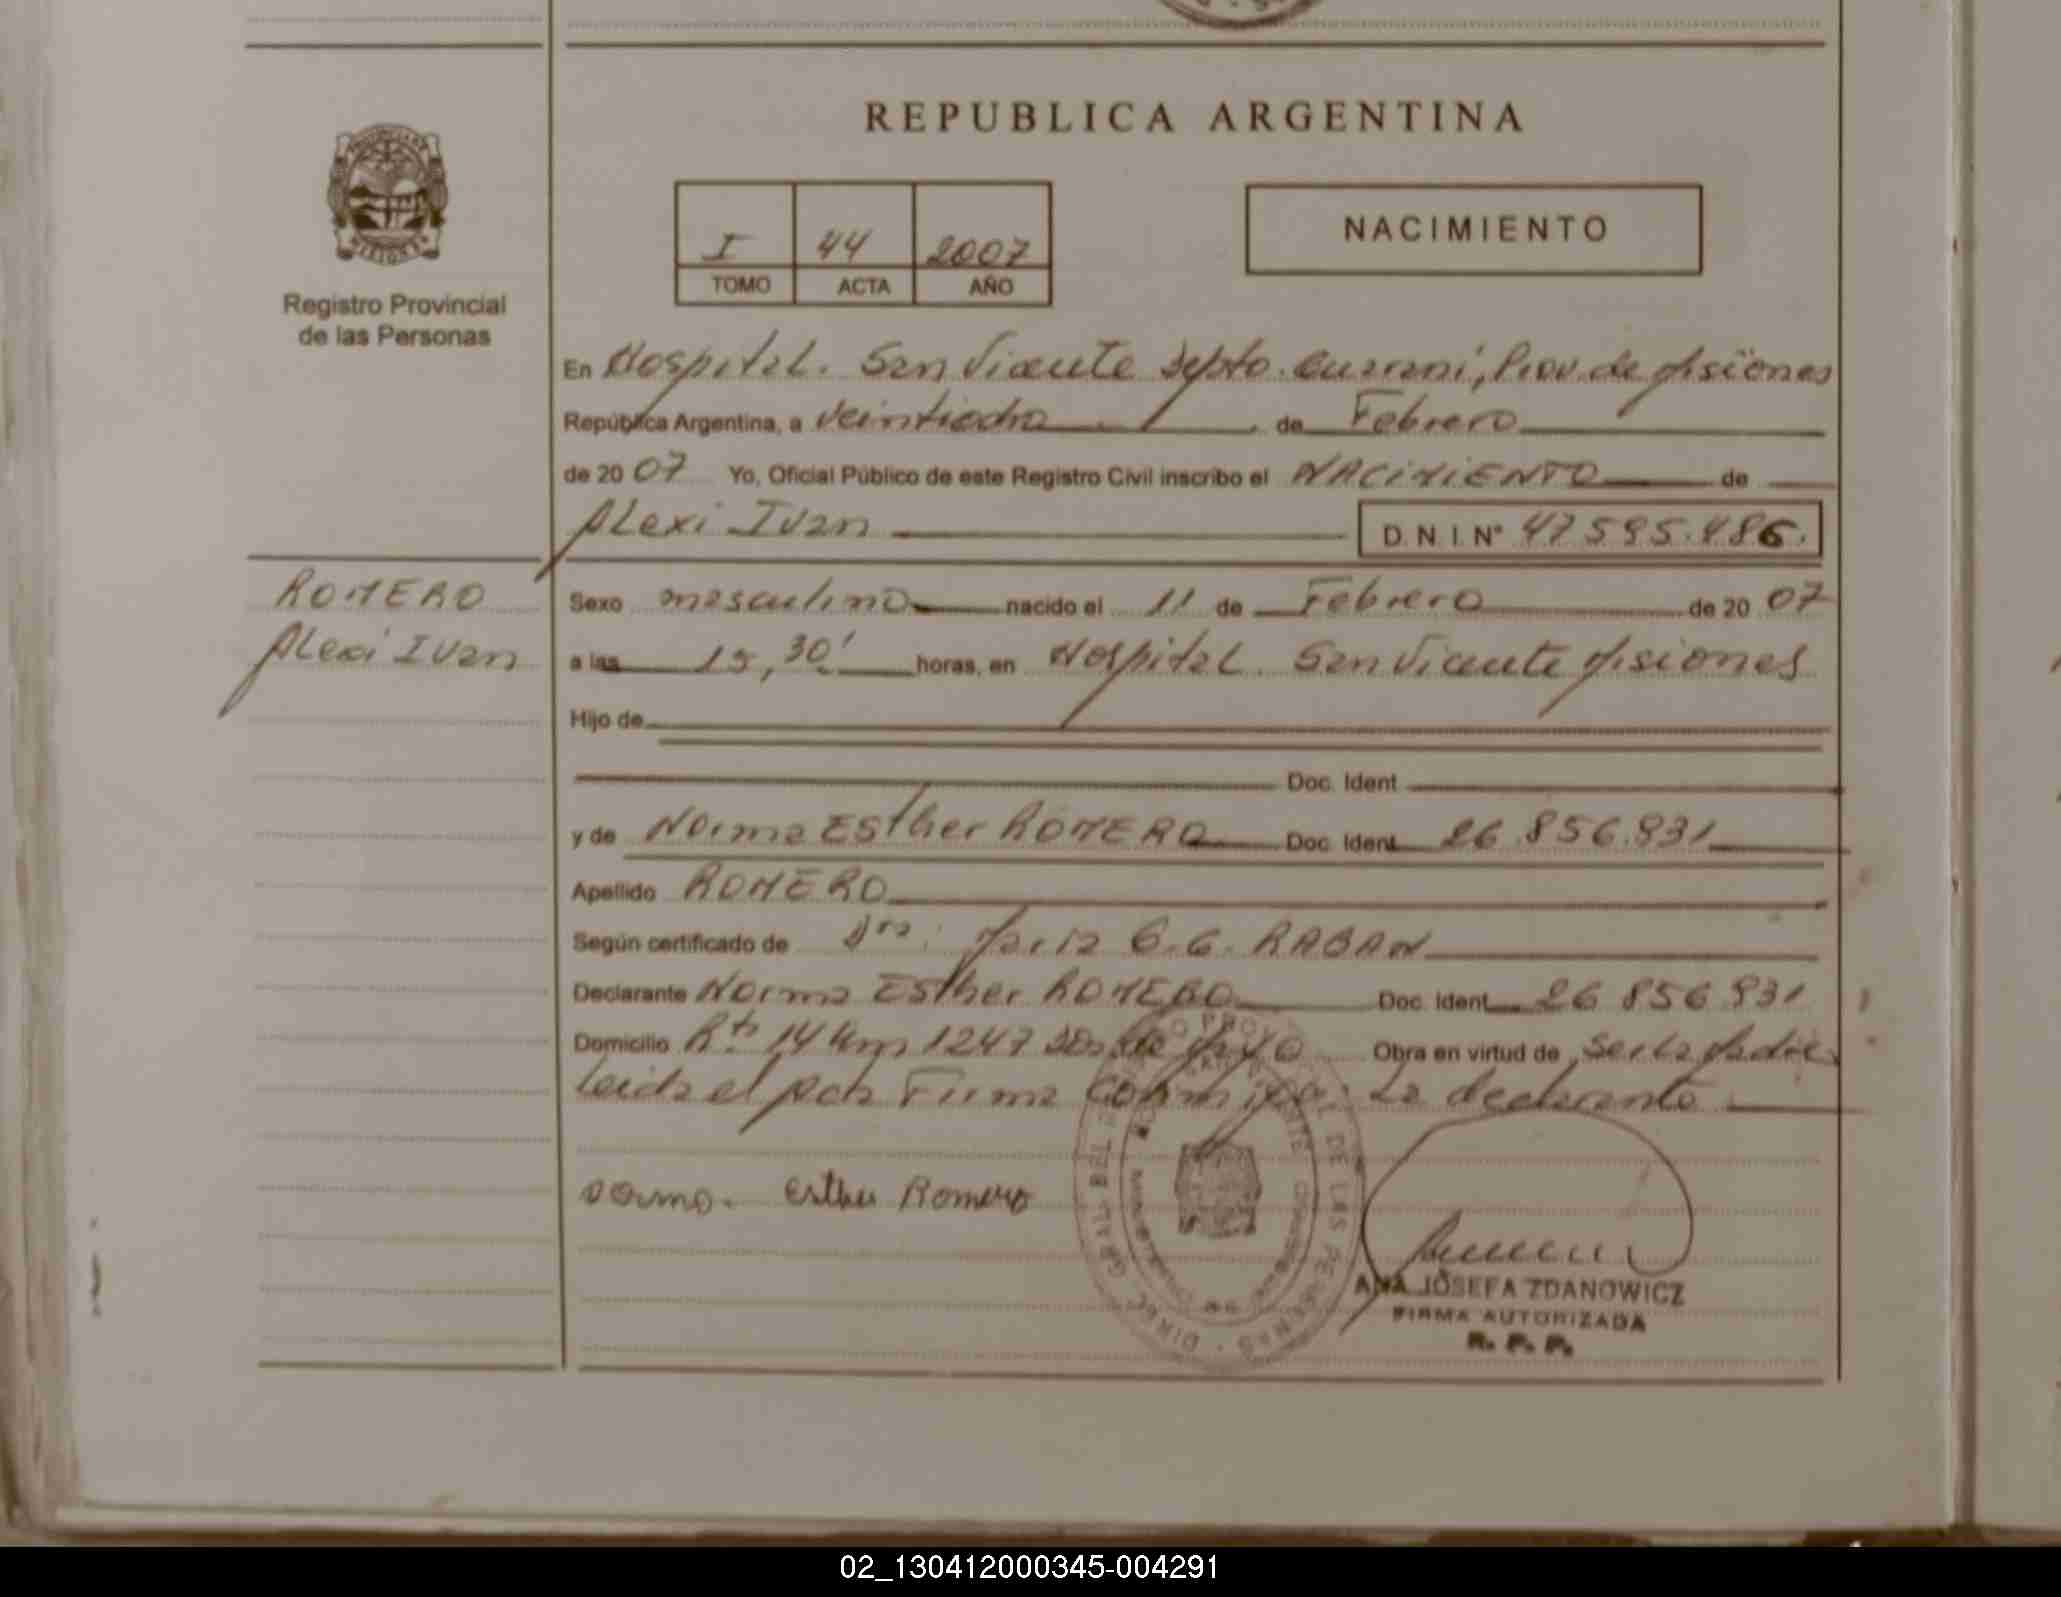 REPUBLICA ARGENTINA
NACIMIENTO
I 44 2007
TOMO ACTA AÑO
Registro Provincial
de las Personas
En Hospital. San Vicente Depto. Guarani, Prov. de Misiones
República Argentina, a Veintiocho de Febrero
de 20 07 Yo, Oficial Público de este Registro Civil inscribo el NACIMIENTO de
Alexi Ivan D. N. I. N°
ROMERO
Alexi Ivan
Sexo masculino nacido el 11 de Febrero de 20 07
a las 15,30' horas, en Hospital. San Vicente Misiones
Hijo de
Doc. Ident
y de Norma Esther ROMERO Doc. Ident 26.856.931
Apellido ROMERO
Según certificado de Dra. Maria G. G. RABAN
Declarante Norma Esther ROMERO Doc. Ident 26 856 931
Domicilio Rta 14 km 1247 Obra en virtud de Ser la Madre
Leida el Acta Firma Conmigo: La declarante
Norma. Esther Romero
ANA JOSEFA ZDANOWICZ
FIRMA AUTORIZADA
R. P. P.
02_130412000345-004291